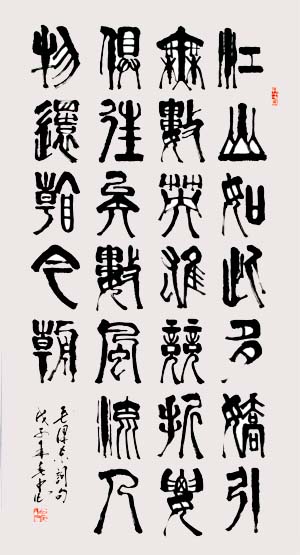 江山如此多嬌引
無數英雄競折要
俱往矣數風流人
物還看今朝
毛澤東詞句
戊子年